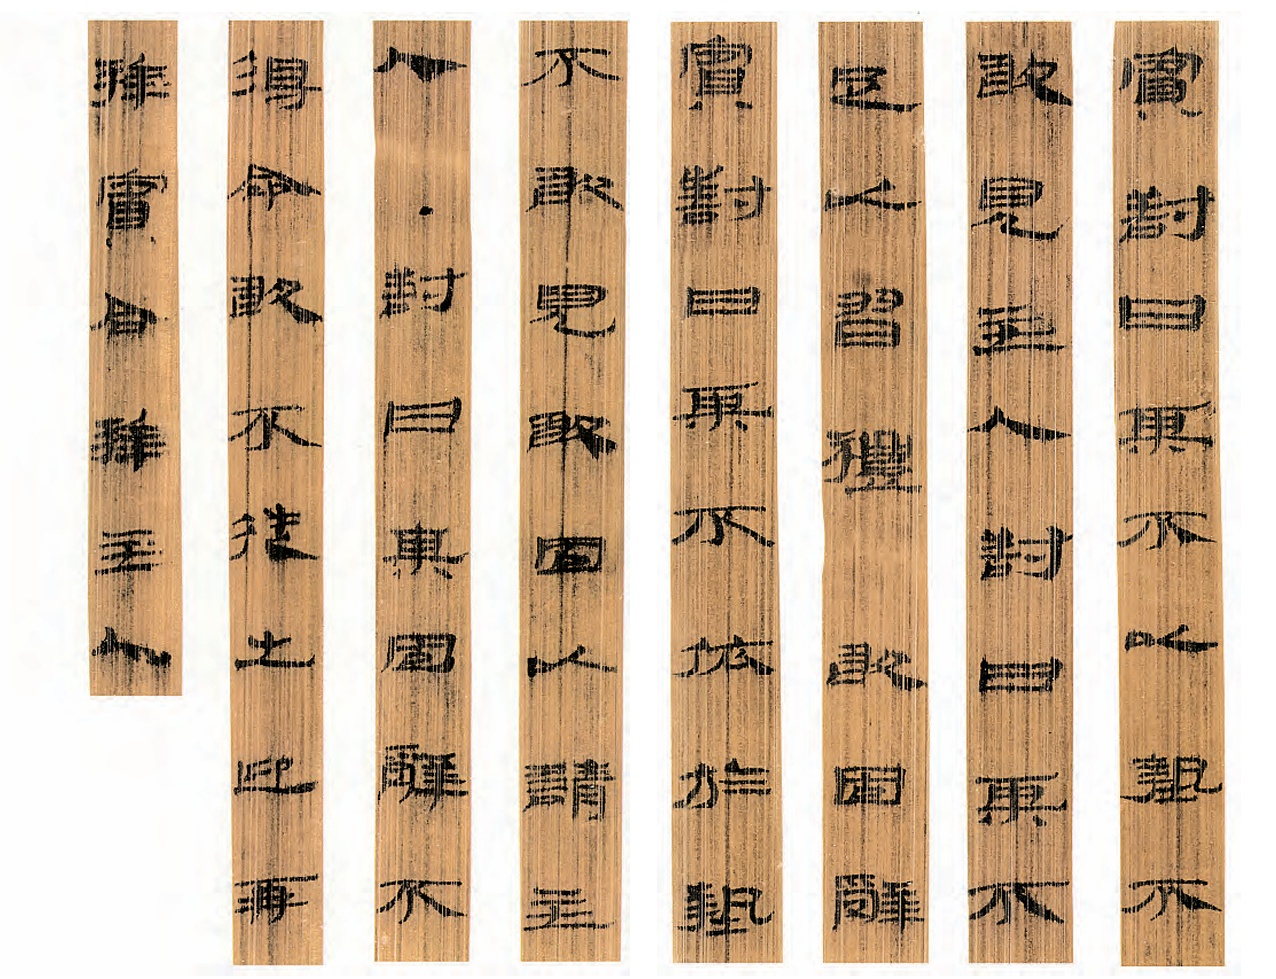 賓對曰某不以摯不
敢見主人對曰某不
足以習禮敢固辭
賓對曰某不依於摯
不敢見敢固以請主
人·對曰某固辭不
得命敢不從之迎再
拜賓合拜主人